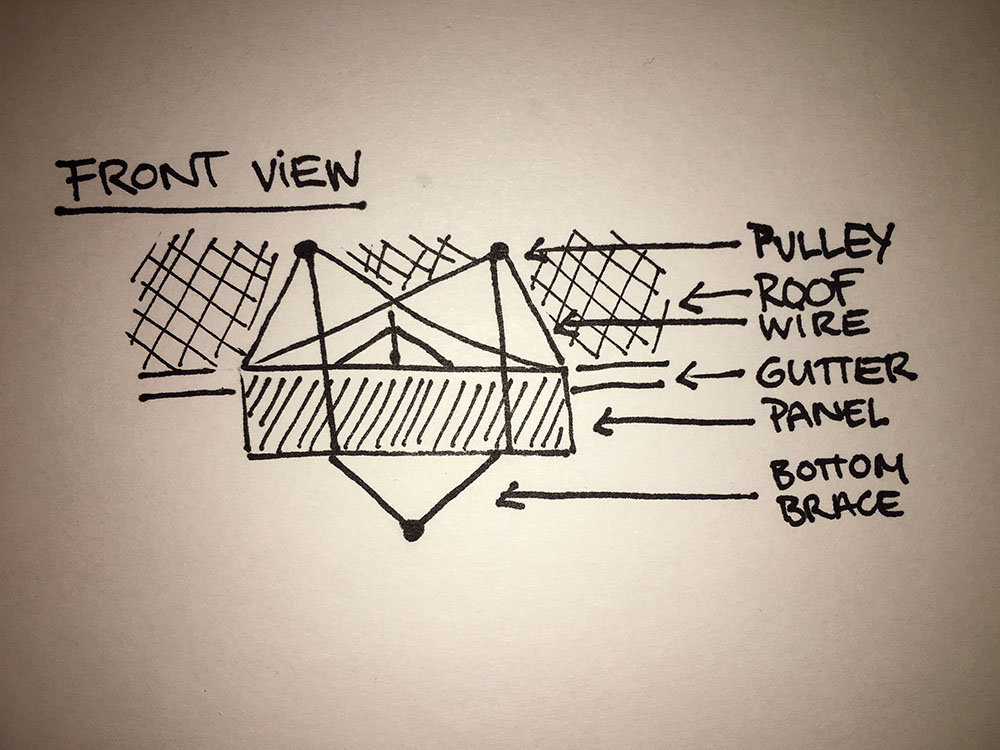 FRONT ViEW
PULLEY
ROOF
WIRE
GUTTER
PANEL
BOTTOM
BRACE